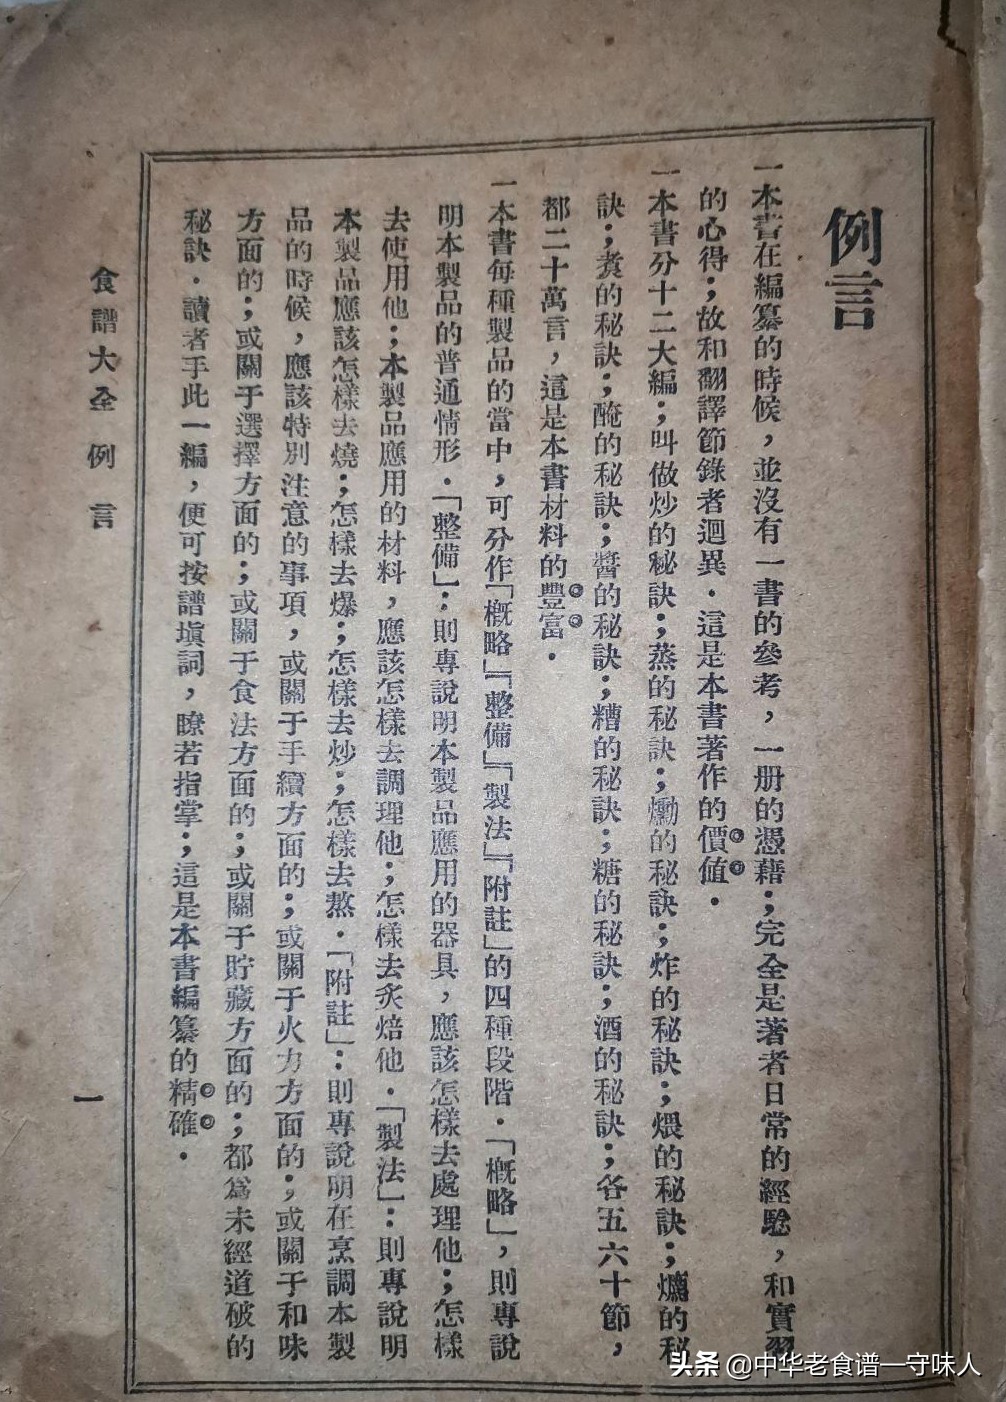 例言
一本書在編纂的時候，並沒有一書的參考，一册的憑藉；完全是著者日常的經驗，和實習
的心得；故和翻譯節錄者迥異．這是本書著作的價值．
一本書分十二大編；叫做炒的秘訣；蒸的秘訣；爊的秘訣；炸的秘訣；煨的秘訣；的秘
訣；煮的秘訣；醃的秘訣；醬的秘訣；糟的秘訣；糖的秘訣；酒的秘訣；各五六十節，
都二十萬言，這是本書材料的豐富．
一本書每種製品的當中，可分作「概略」「整備」「製法」「附註」的四種段階．「概略」，則專說
明本製品的普通情形．「整備」：則專說明本製品應用的器具，應該怎樣去處理他；怎樣
去使用他；本製品應用的材料，應該怎樣去調理他；怎樣去炙焙他．「製法」：則專說明
本製品應該怎樣去燒；怎樣去爆；怎樣去炒；怎樣去熬．「附註」：則專說明在烹調本製
品的時候，應該特別注意的事項，或關于手續方面的；或關于火力方面的；或關于和味
方面的；或關于選擇方面的；或關于食法方面的；或關于貯藏方面的；都爲未經道破的
秘訣．讀者手此一編，便可按譜塡詞，瞭若指掌；這是本書編纂的精確．
食譜大全 例言
一
头条 @中华老食谱—守味人